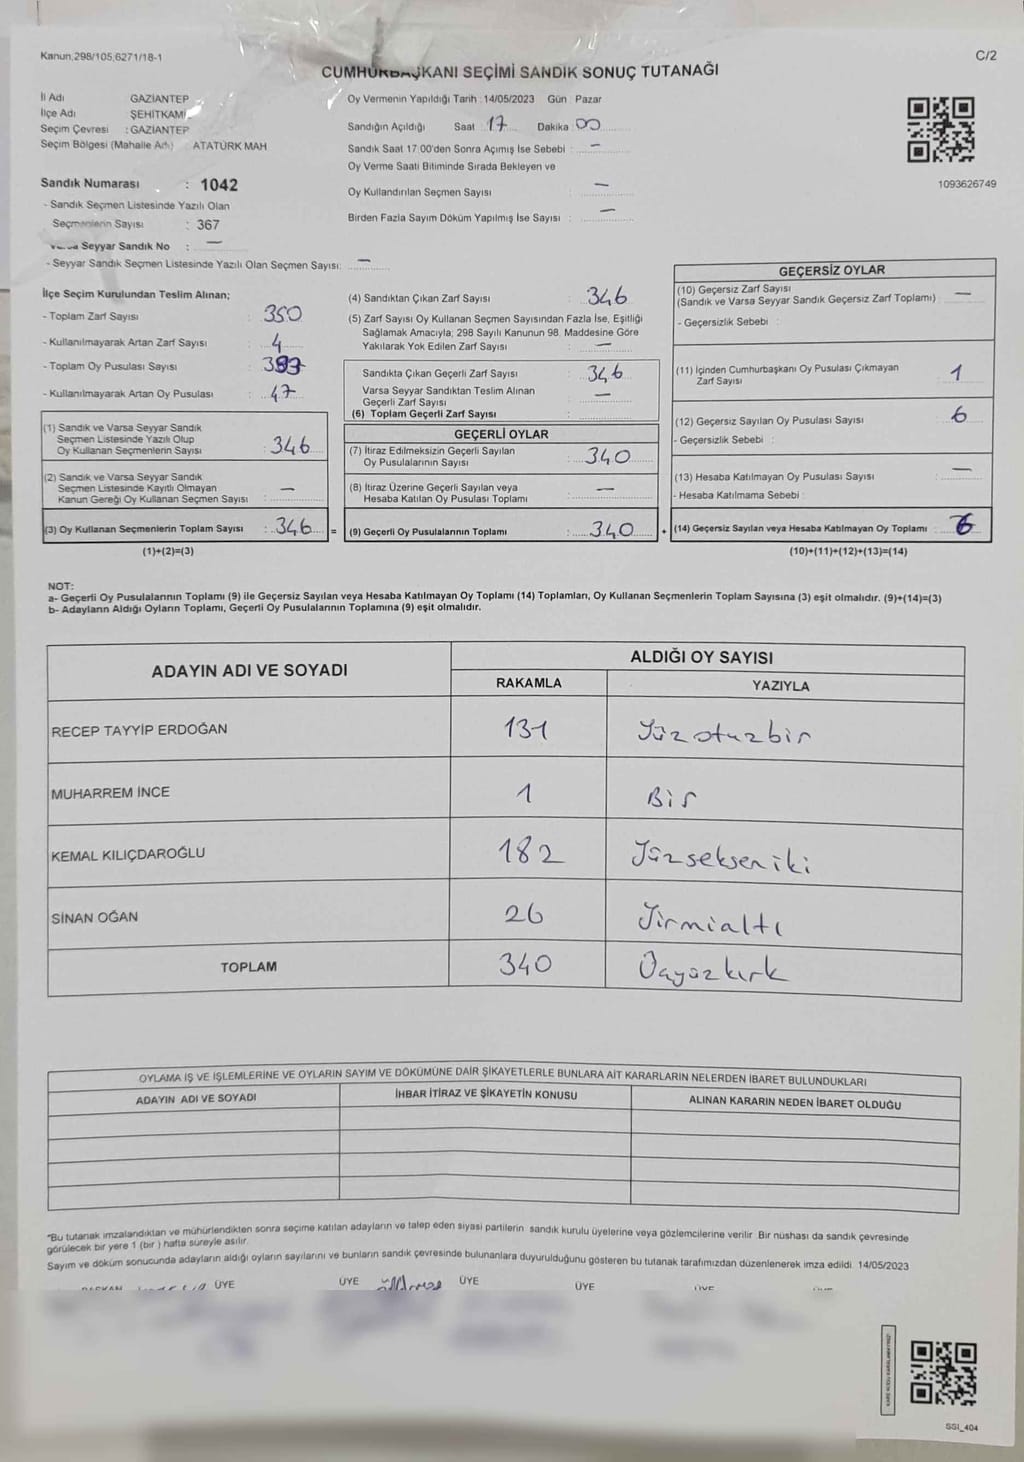 Kanun,298/105,6271/18-1
C/2
CUMHURBAŞKANI SEÇİMİ SANDIK SONUÇ TUTANAĞI
İl Adı GAZİANTEP
İlçe Adı ŞEHİTKAMİ
Seçim Çevresi : GAZİANTEP
Seçim Bölgesi (Mahalle Adı) ATATÜRK MAH
Sandık Numarası : 1042
- Sandık Seçmen Listesinde Yazılı Olan
Seçmenlerin Sayısı : 367
Varsa Seyyar Sandık No : —
- Seyyar Sandık Seçmen Listesinde Yazılı Olan Seçmen Sayısı: —
Oy Vermenin Yapıldığı Tarih : 14/05/2023 Gün Pazar
Sandığın Açıldığı Saat 17 Dakika 00
Sandık Saat 17:00'den Sonra Açımış İse Sebebi : —
Oy Verme Saati Bitiminde Sırada Bekleyen ve
Oy Kullandırılan Seçmen Sayısı : —
Birden Fazla Sayım Döküm Yapılmış İse Sayısı : —
1093626749
İlçe Seçim Kurulundan Teslim Alınan;
- Toplam Zarf Sayısı : 350
- Kullanılmayarak Artan Zarf Sayısı : 4
- Toplam Oy Pusulası Sayısı :
- Kullanılmayarak Artan Oy Pusulası : 47
(1) Sandık ve Varsa Seyyar Sandık
Seçmen Listesinde Yazılı Olup
Oy Kullanan Seçmenlerin Sayısı : 346
(2) Sandık ve Varsa Seyyar Sandık
Seçmen Listesinde Kayıtlı Olmayan
Kanun Gereği Oy Kullanan Seçmen Sayısı : —
(3) Oy Kullanan Seçmenlerin Toplam Sayısı : 346 =
(1)+(2)=(3)
(4) Sandıktan Çıkan Zarf Sayısı : 346
(5) Zarf Sayısı Oy Kullanan Seçmen Sayısından Fazla İse, Eşitliği
Sağlamak Amacıyla; 298 Sayılı Kanunun 98. Maddesine Göre
Yakılarak Yok Edilen Zarf Sayısı : —
Sandıkta Çıkan Geçerli Zarf Sayısı : 346
Varsa Seyyar Sandıktan Teslim Alınan
Geçerli Zarf Sayısı : —
(6) Toplam Geçerli Zarf Sayısı :
GEÇERLİ OYLAR
(7) İtiraz Edilmeksizin Geçerli Sayılan
Oy Pusulalarının Sayısı : 340
(8) İtiraz Üzerine Geçerli Sayılan veya
Hesaba Katılan Oy Pusulası Toplamı : —
(9) Geçerli Oy Pusulalarının Toplamı : 340 +
GEÇERSİZ OYLAR
(10) Geçersiz Zarf Sayısı
(Sandık ve Varsa Seyyar Sandık Geçersiz Zarf Toplamı) : —
- Geçersizlik Sebebi :
(11) İçinden Cumhurbaşkanı Oy Pusulası Çıkmayan
Zarf Sayısı : 1
(12) Geçersiz Sayılan Oy Pusulası Sayısı : 6
- Geçersizlik Sebebi :
(13) Hesaba Katılmayan Oy Pusulası Sayısı : —
- Hesaba Katılmama Sebebi :
(14) Geçersiz Sayılan veya Hesaba Katılmayan Oy Toplamı : 6
(10)+(11)+(12)+(13)=(14)
NOT:
a- Geçerli Oy Pusulalarının Toplamı (9) ile Geçersiz Sayılan veya Hesaba Katılmayan Oy Toplamı (14) Toplamları, Oy Kullanan Seçmenlerin Toplam Sayısına (3) eşit olmalıdır. (9)+(14)=(3)
b- Adayların Aldığı Oyların Toplamı, Geçerli Oy Pusulalarının Toplamına (9) eşit olmalıdır.
ADAYIN ADI VE SOYADI
ALDIĞI OY SAYISI
RAKAMLA YAZIYLA
RECEP TAYYİP ERDOĞAN 131 Yüzotuzbir
MUHARREM İNCE 1 Bir
KEMAL KILIÇDAROĞLU 182 Yüzsekseniki
SİNAN OĞAN 26 Yirmialtı
TOPLAM 340 Üçyüzkırk
OYLAMA İŞ VE İŞLEMLERİNE VE OYLARIN SAYIM VE DÖKÜMÜNE DAİR ŞİKAYETLERLE BUNLARA AİT KARARLARIN NELERDEN İBARET BULUNDUKLARI
ADAYIN ADI VE SOYADI İHBAR İTİRAZ VE ŞİKAYETİN KONUSU ALINAN KARARIN NEDEN İBARET OLDUĞU
"Bu tutanak imzalandıktan ve mühürlendikten sonra seçime katılan adayların ve talep eden siyasi partilerin sandık kurulu üyelerine veya gözlemcilerine verilir. Bir nüshası da sandık çevresinde
görülecek bir yere 1 (bir) hafta süreyle asılır.
Sayım ve döküm sonucunda adayların aldığı oyların sayılarını ve bunların sandık çevresinde bulunanlara duyurulduğunu gösteren bu tutanak tarafımızdan düzenlenerek imza edildi. 14/05/2023
BAŞKAN ÜYE ÜYE ÜYE ÜYE ÜYE
SSI_404